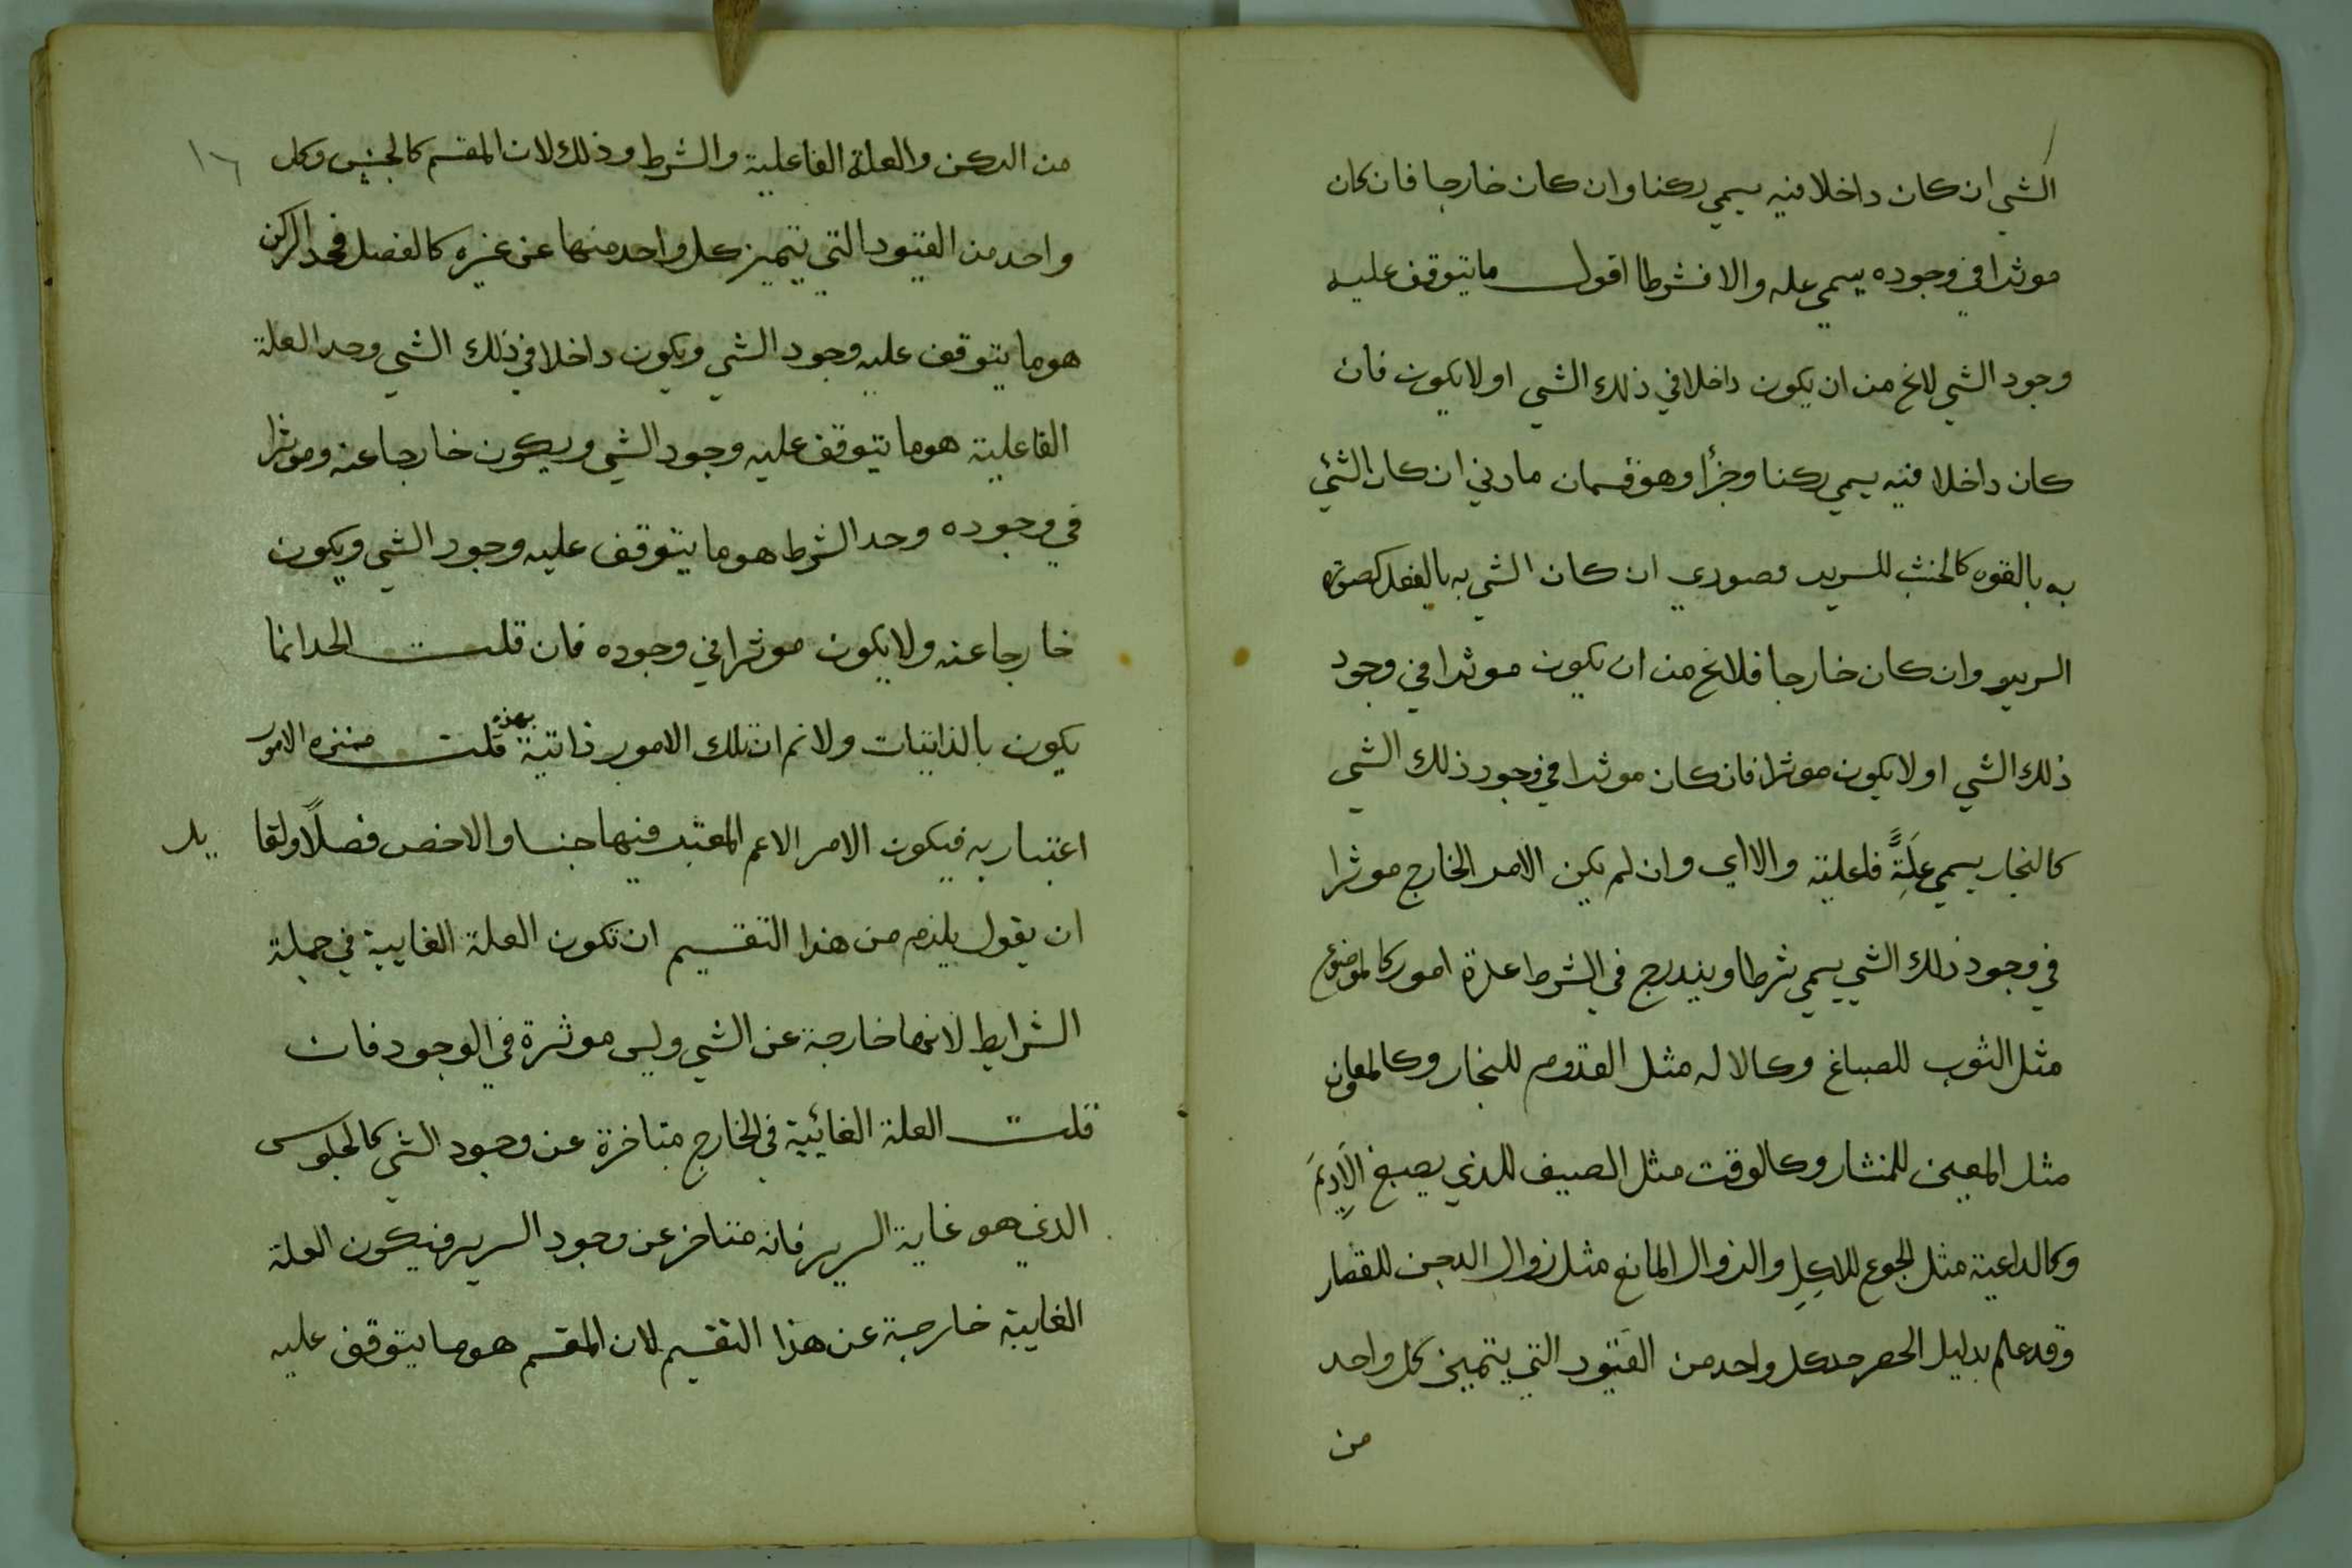 الشي ان كان داخلا فيه يسمي ركنا وان كان خارجا فان كان
موثرا في وجوده يسمي عله والا فشرطا اقول ما يتوقف عليه
وجود الشي لايخ من ان يكون داخلا في ذلك الشي او لا يكون فان
كان داخلا فيه يسمي ركنا وجزأ وهو قسمان مادي ان كان الشئ
به بالقوه كالخشب للسرير وصوري ان كان الشي به بالفعل كصورة
السرير وان كان خارجا فلايخ من ان يكون موثرا في وجود
ذلك الشي او لا يكون موثرا فان كان موثرا في وجود ذلك الشي
كالنجار يسمي علةً فاعلية والا اي وان لم يكن الامر الخارج موثرا
في وجود ذلك الشي يسمي شرطا ويندرج في الشرط عدة امور كالموضوع
مثل الثوب للصباغ وكالاله مثل القدوم للنجار وكالمعاون
مثل المعين للمنشار وكالوقت مثل الصيف للذي يصبغ الاديم
وكالداعية مثل الجوع للاكل والزوال المانع مثل زوال الدجن للقصار
وقد علم بدليل الحصر حد كل واحد من القيود التي يتميز كل واحد
من
١٦
من الركن والعلة الفاعلية والشرط وذلك لان المقسم كالجنس وكل
واحد من القيود التي يتميز كل واحد منها عن غيره كالفصل فحد الركن
هو ما يتوقف عليه وجود الشي ويكون داخلا في ذلك الشي وحد العلة
الفاعلية هو ما يتوقف عليه وجود الشي ويكون خارجا عنه وموثرا
في وجوده وحد الشرط هو ما يتوقف عليه وجود الشي ويكون
خارجا عنه ولا يكون موثرا في وجوده فان قلت الحد انما
يكون بالذاتيات ولا نم ان تلك الامور ذاتية قلت هذه الامور
اعتباريه فيكون الامر الاعم المعتبر فيها جنسا والاخص فصلًا ولقا
يل
ان يقول يلزم من هذا التقسيم ان تكون العلة الغايية في جملة
الشرايط لانها خارجة عن الشي وليس موثرة في الوجود فان
قلت العلة الغائية في الخارج متاخرة عن وجود الشي كالجلوس
الذي هو غاية السرير فانه متاخر عن وجود السرير فيكون العلة
الغايية خارجة عن هذا التقسيم لان المقسم هو ما يتوقف عليه